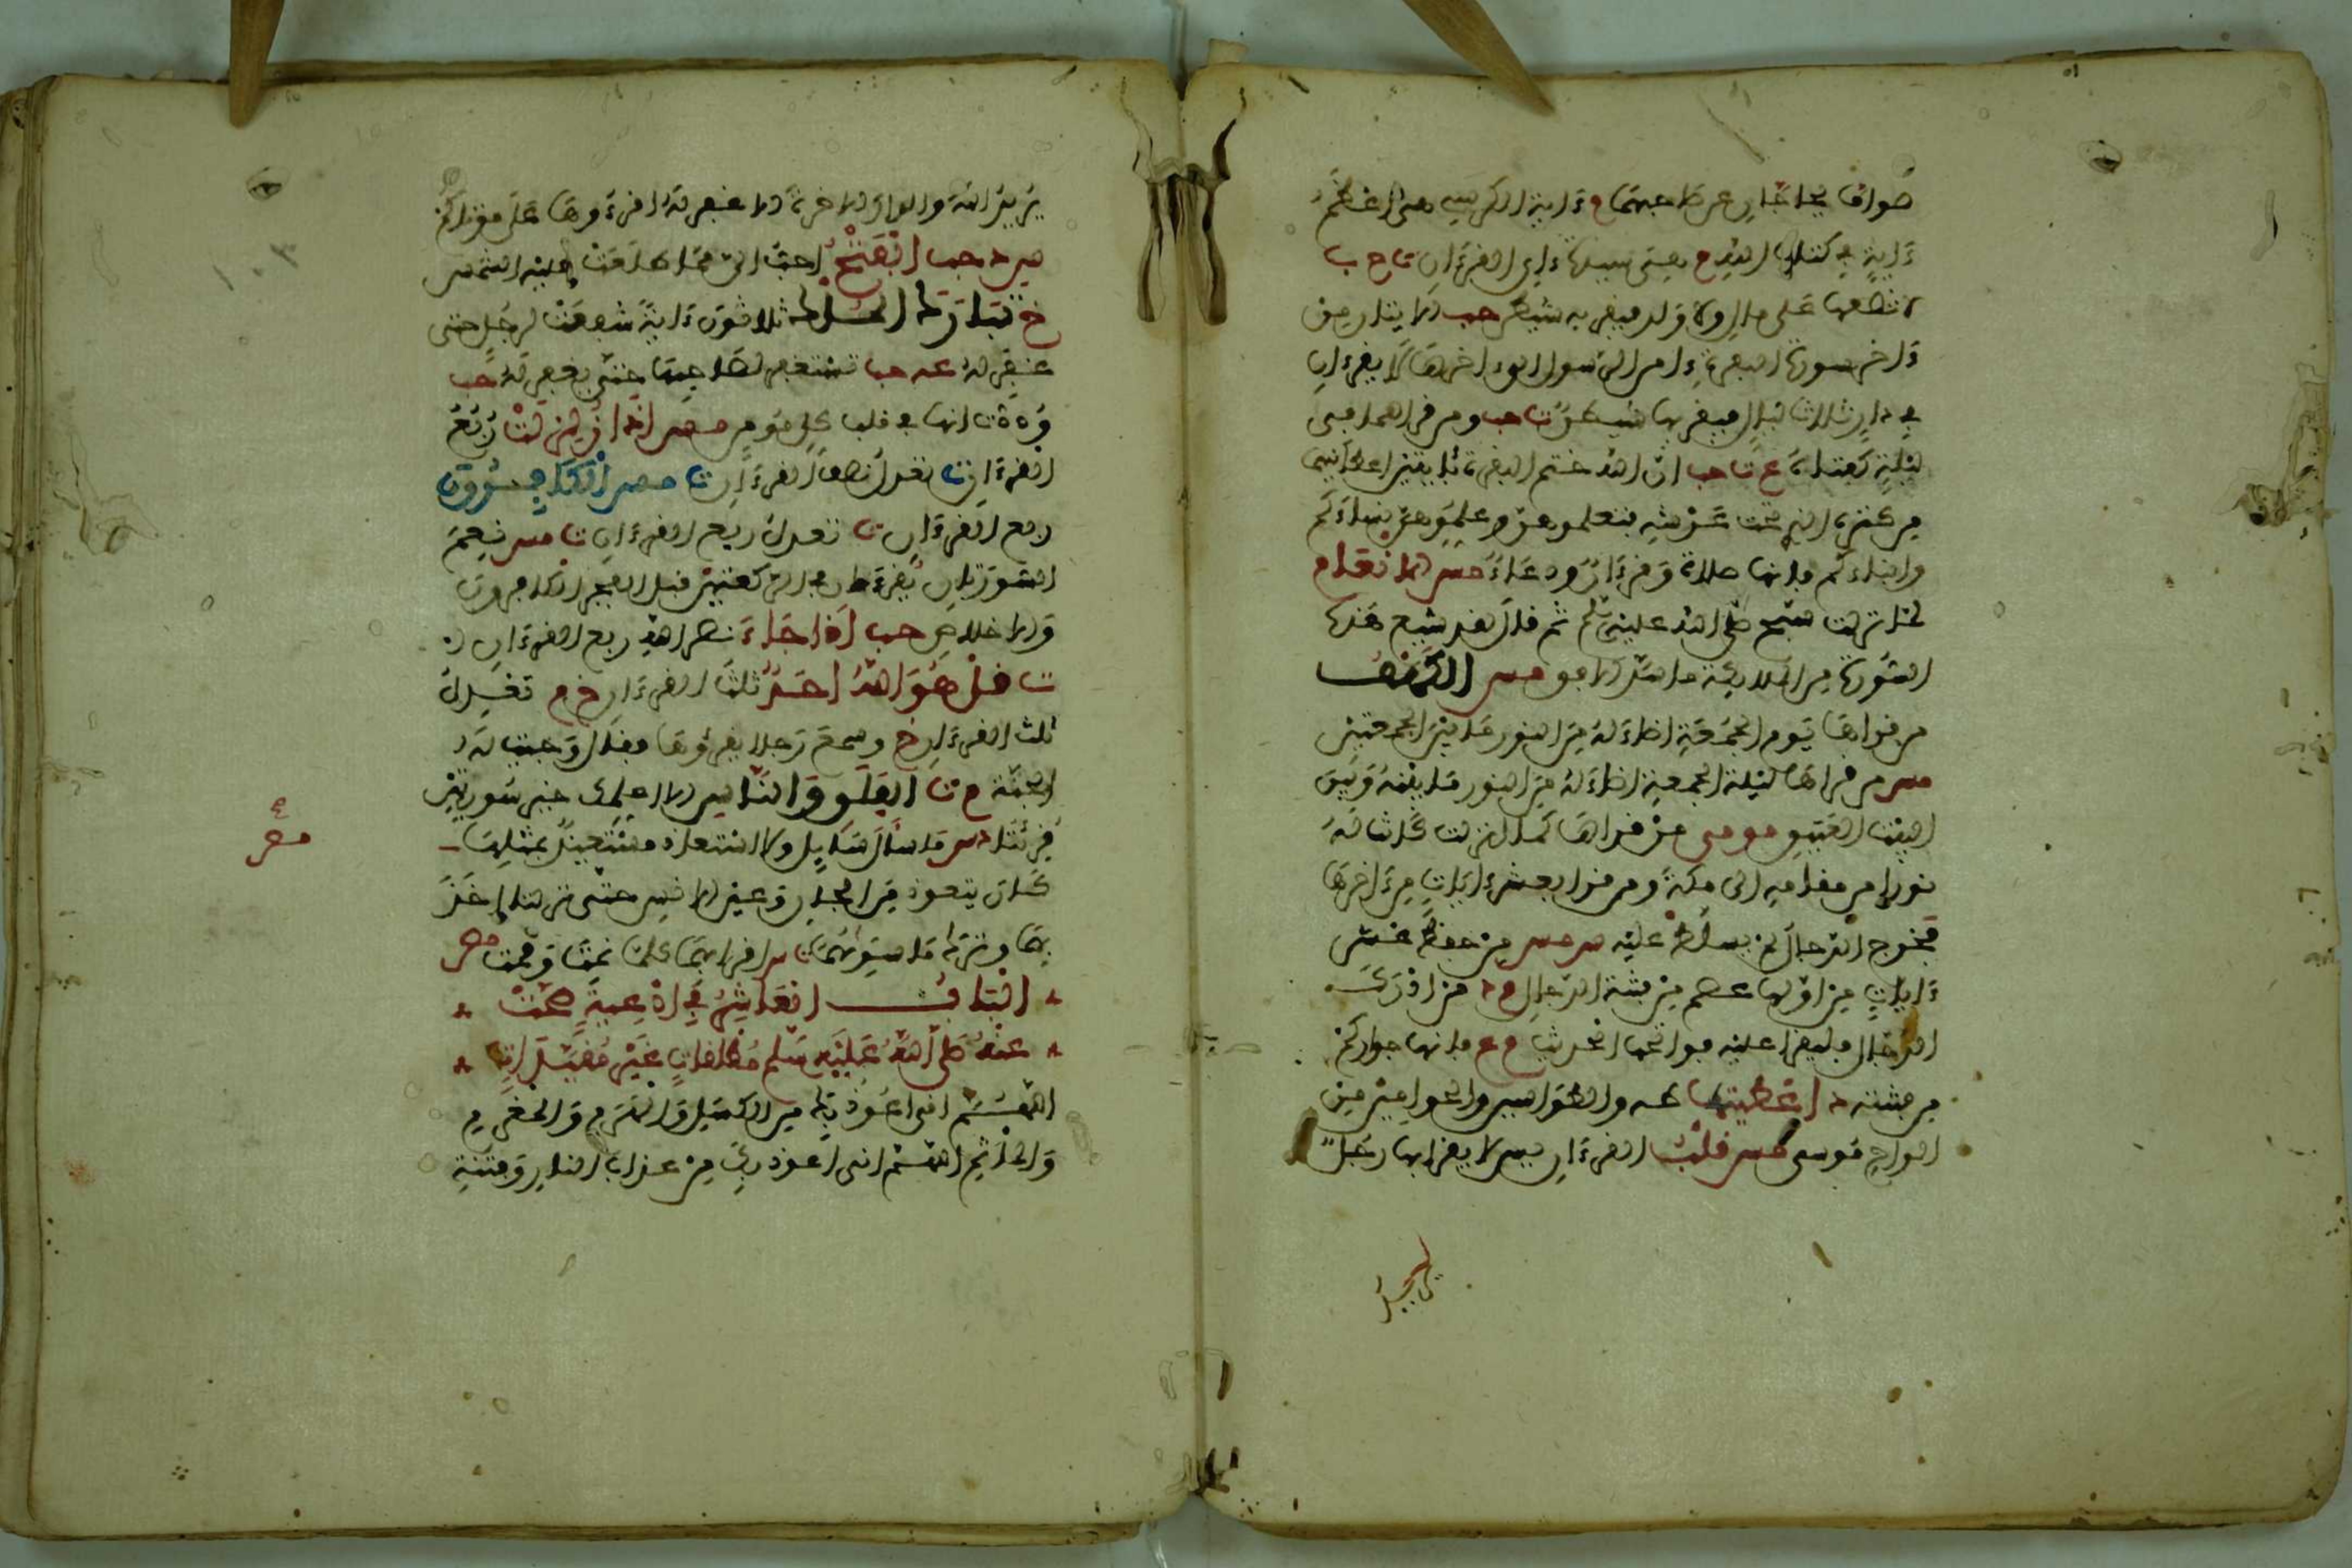 صواف تحاجان عن صاحبهما م ءاية الكرسي هي أعظم
ءاية في كتاب الله م هي سيدة ءاي القرءان ت ح ب
لا تضعها على مال ولا ولد فيقربه شيطان حب الايتان من
ءاخر سورة البقرة ءامن الرسول الى ءاخرها لا يقرءان
في دار ثلاث ليال فيقربها شيطان ت حب ومن قراهما في
ليلة كفتاه ع ت حب ان الله ختم البقرة بايتين اعطانيهما
من كنزه الذي تحت عرشه فتعلموهن وعلموهن نساءكم
وابناءكم فانها صلاة وقرءان ودعاء مس الانعام
لما نزلت سبح صلى الله عليه وسلم ثم قال لقد شيع هذه
السورة من الملايكة ما سد الافق مس الكهف
من قراها يوم الجمعة اضاء له من النور ما بين الجمعتين
مس من قراها ليلة الجمعة اضاء له من النور ما بينه وبين
البيت العتيق مو مي من قراها كما انزلت كانت له
نورا من مقامه الى مكة ومن قرا بعشر ءايات من ءاخرها
فخرج الدجال لم يسلط عليه س مس من حفظ عشر
ءايات من اولها عصم من فتنة الدجال م د من ادرك
الدجال فليقرا عليه فواتحها الحديث م ع فانها جواركم
من فتنته د اعطيت طه والطواسين والحواميم من
الواح موسى مس قلب القرءان يس لا يقراها رجل
يريد
يريد الله والدار الاخرة الا غفر له اقرءوها على موتاكم
س د حب الفتح احب الي مما طلعت عليه الشمس
خ تبارك الملك ثلاثون ءاية شفعت لرجل حتى
غفر له عه حب تستغفر لصاحبها حتى يغفر له حب
وددت انها في قلب كل مومن مس اذا زلزلت ربع
القرءان ت تعدل نصف القرءان ت مس الكافرون
ربع القرءان ت تعدل ربع القرءان ت مس نعم
السورتان يقرءان في الركعتين قبل الفجر الكافرون
والاخلاص حب اذا جاء نصر الله ربع القرءان
ت قل هو الله احد ثلث القرءان خ م تعدل
ثلث القرءان خ وسمع رجلا يقرؤها فقال وجبت له
الجنة م ت الفلق والناس الا اعلمك خير سورتين
قرئتا د س ما سال سايل ولا استعاذ مستعيذ بمثلهما
كان يتعوذ من الجان وعين الانس حتى نزلتا اخذ
بهما وترك ما سواهما ت س اقرا بهما كلما نمت وقمت مص
الباب العاشر في ادعية صحت
عنه صلى الله عليه وسلم مطلقات غير مقيدات
اللهم اني اعوذ بك من الكسل والهرم والمغرم
والماثم اللهم اني اعوذ بك من عذاب النار وفتنة
ع
مص
١٠٣